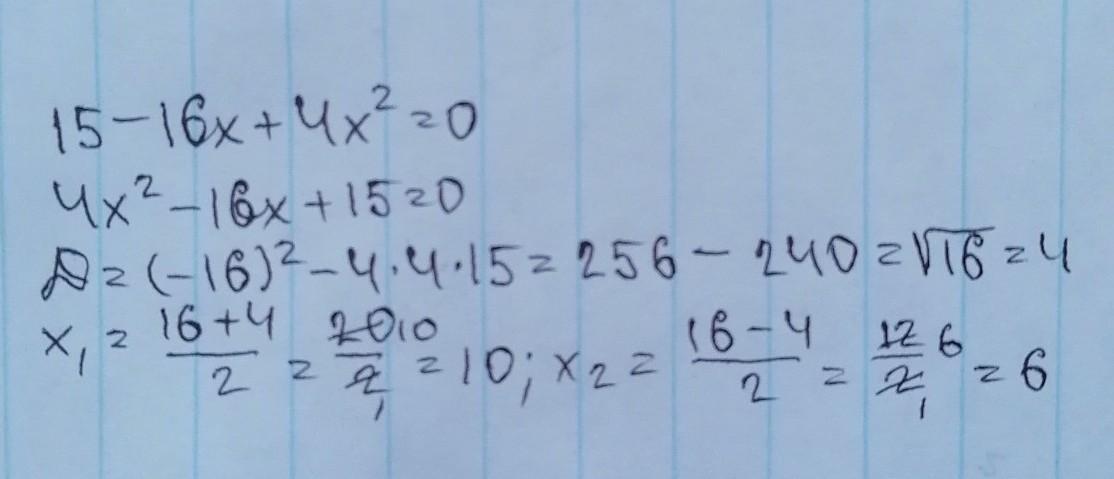 15-16x+4x²=0
4x²-16x+15=0
D=(-16)²-4·4·15=256-240=√16=4
x₁=16+4/2=20/2 10/1=10; x₂=16-4/2=12/2 6/1=6